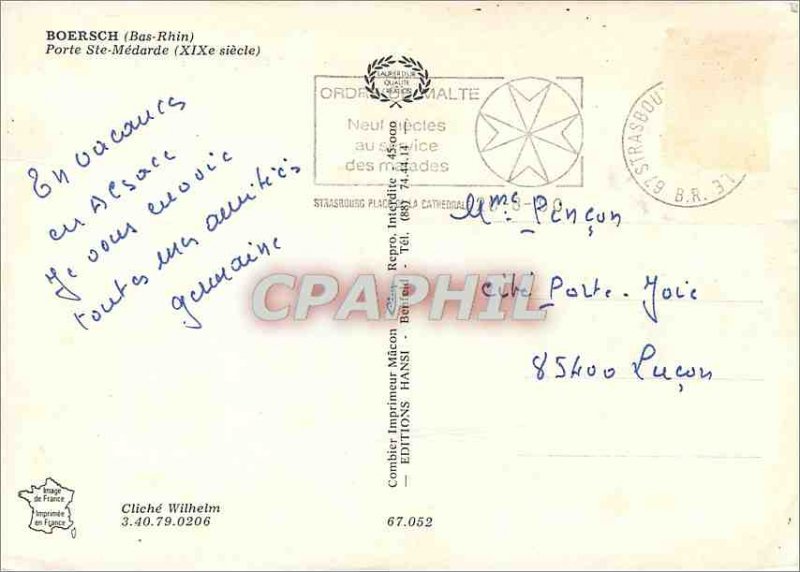 BOERSCH (Bas-Rhin)
Porte Ste-Médarde (XIXe siècle)
LAURIER D'OR
QUALITE
CREATION
ORDRE DE MALTE
Neuf siècles
au service
des malades
STRASBOURG PLACE LA CATHEDRALE
67 STRASBOU
B.R. 31
En vacances
en Alsace
Je vous envoie
toutes mes amitiés
germaine
Mme Pinçon
cité Porte-Joie
85400 Luçon
CPAPHIL
Combier Imprimeur Mâcon Repro. Interdite - 45.000
— EDITIONS HANSI - Benfeld - Tél. (88) 74.44.14 —
Image
de France
Imprimée
en France
Cliché Wilhelm
3.40.79.0206
67.052